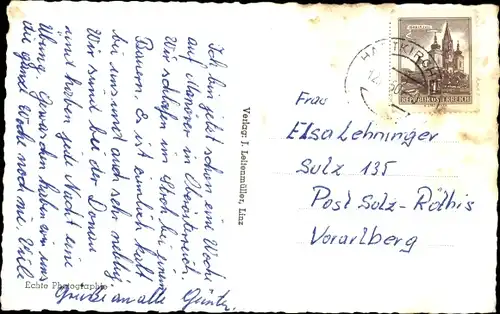 Ich bin jetzt schon eine Woche
auf Manöver in Oberösterreich.
Wir schlafen im Stroh bei einem
Bauern. Es ist ziemlich kalt
bei uns und auch sehr neblig.
Wir sind bei der Donau
und haben jede Nacht eine
Übung. Gewaschen haben wir uns
die ganze Woche noch nie. Viele
Grüsse an alle Günter.
Echte Photographie
Verlag: J. Leitenmüller, Linz
HARTKIRCHEN
REPUBLIK ÖSTERREICH
Frau
Elsa Lehninger
Sulz 135
Post Sulz-Röthis
Vorarlberg